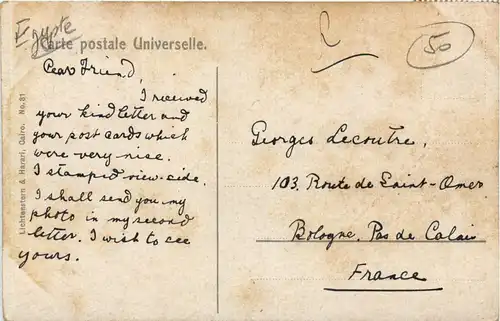 Egypte
Carte postale Universelle.
50
Dear Friend,
I received
your kind letter and
your post cards which
were very nise.
I stamped view-cide.
I shall send you my
photo in my second
letter. I wish to see
yours.
Georges Lecoutre,
103. Route de Saint-Omer
Bologne. Pas de Calais
France
Lichtenstern & Harari, Cairo. No. 81